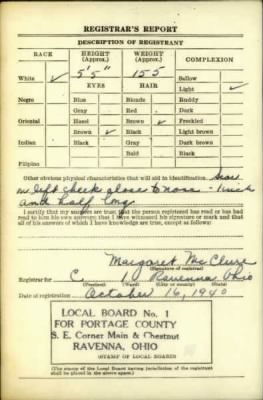 REGISTRAR'S REPORT
DESCRIPTION OF REGISTRANT
RACE HEIGHT (Approx.) WEIGHT (Approx.) COMPLEXION
5'5" 155
White ✓ Sallow
EYES HAIR Light ✓
Negro Blue Blonde Ruddy
Gray Red Dark
Oriental Hazel Brown ✓ Freckled
Brown ✓ Black Light brown
Indian Black Gray Dark brown
Bald Black
Filipino
Other obvious physical characteristics that will aid in identification Scar
on left cheek close to nose - 1 inch
and half long
I certify that my answers are true; that the person registered has read or has had
read to him his own answers; that I have witnessed his signature or mark and that
all of his answers of which I have knowledge are true, except as follows:
Margaret McClure
(Signature of registrar)
Registrar for C 1 Ravenna Ohio
(Precinct) (Ward) (City or county) (State)
Date of registration October 16, 1940
LOCAL BOARD No. 1
FOR PORTAGE COUNTY
S. E. Corner Main & Chestnut
RAVENNA, OHIO
(STAMP OF LOCAL BOARD)
(The stamp of the Local Board having jurisdiction of the registrant
shall be placed in the above space.)